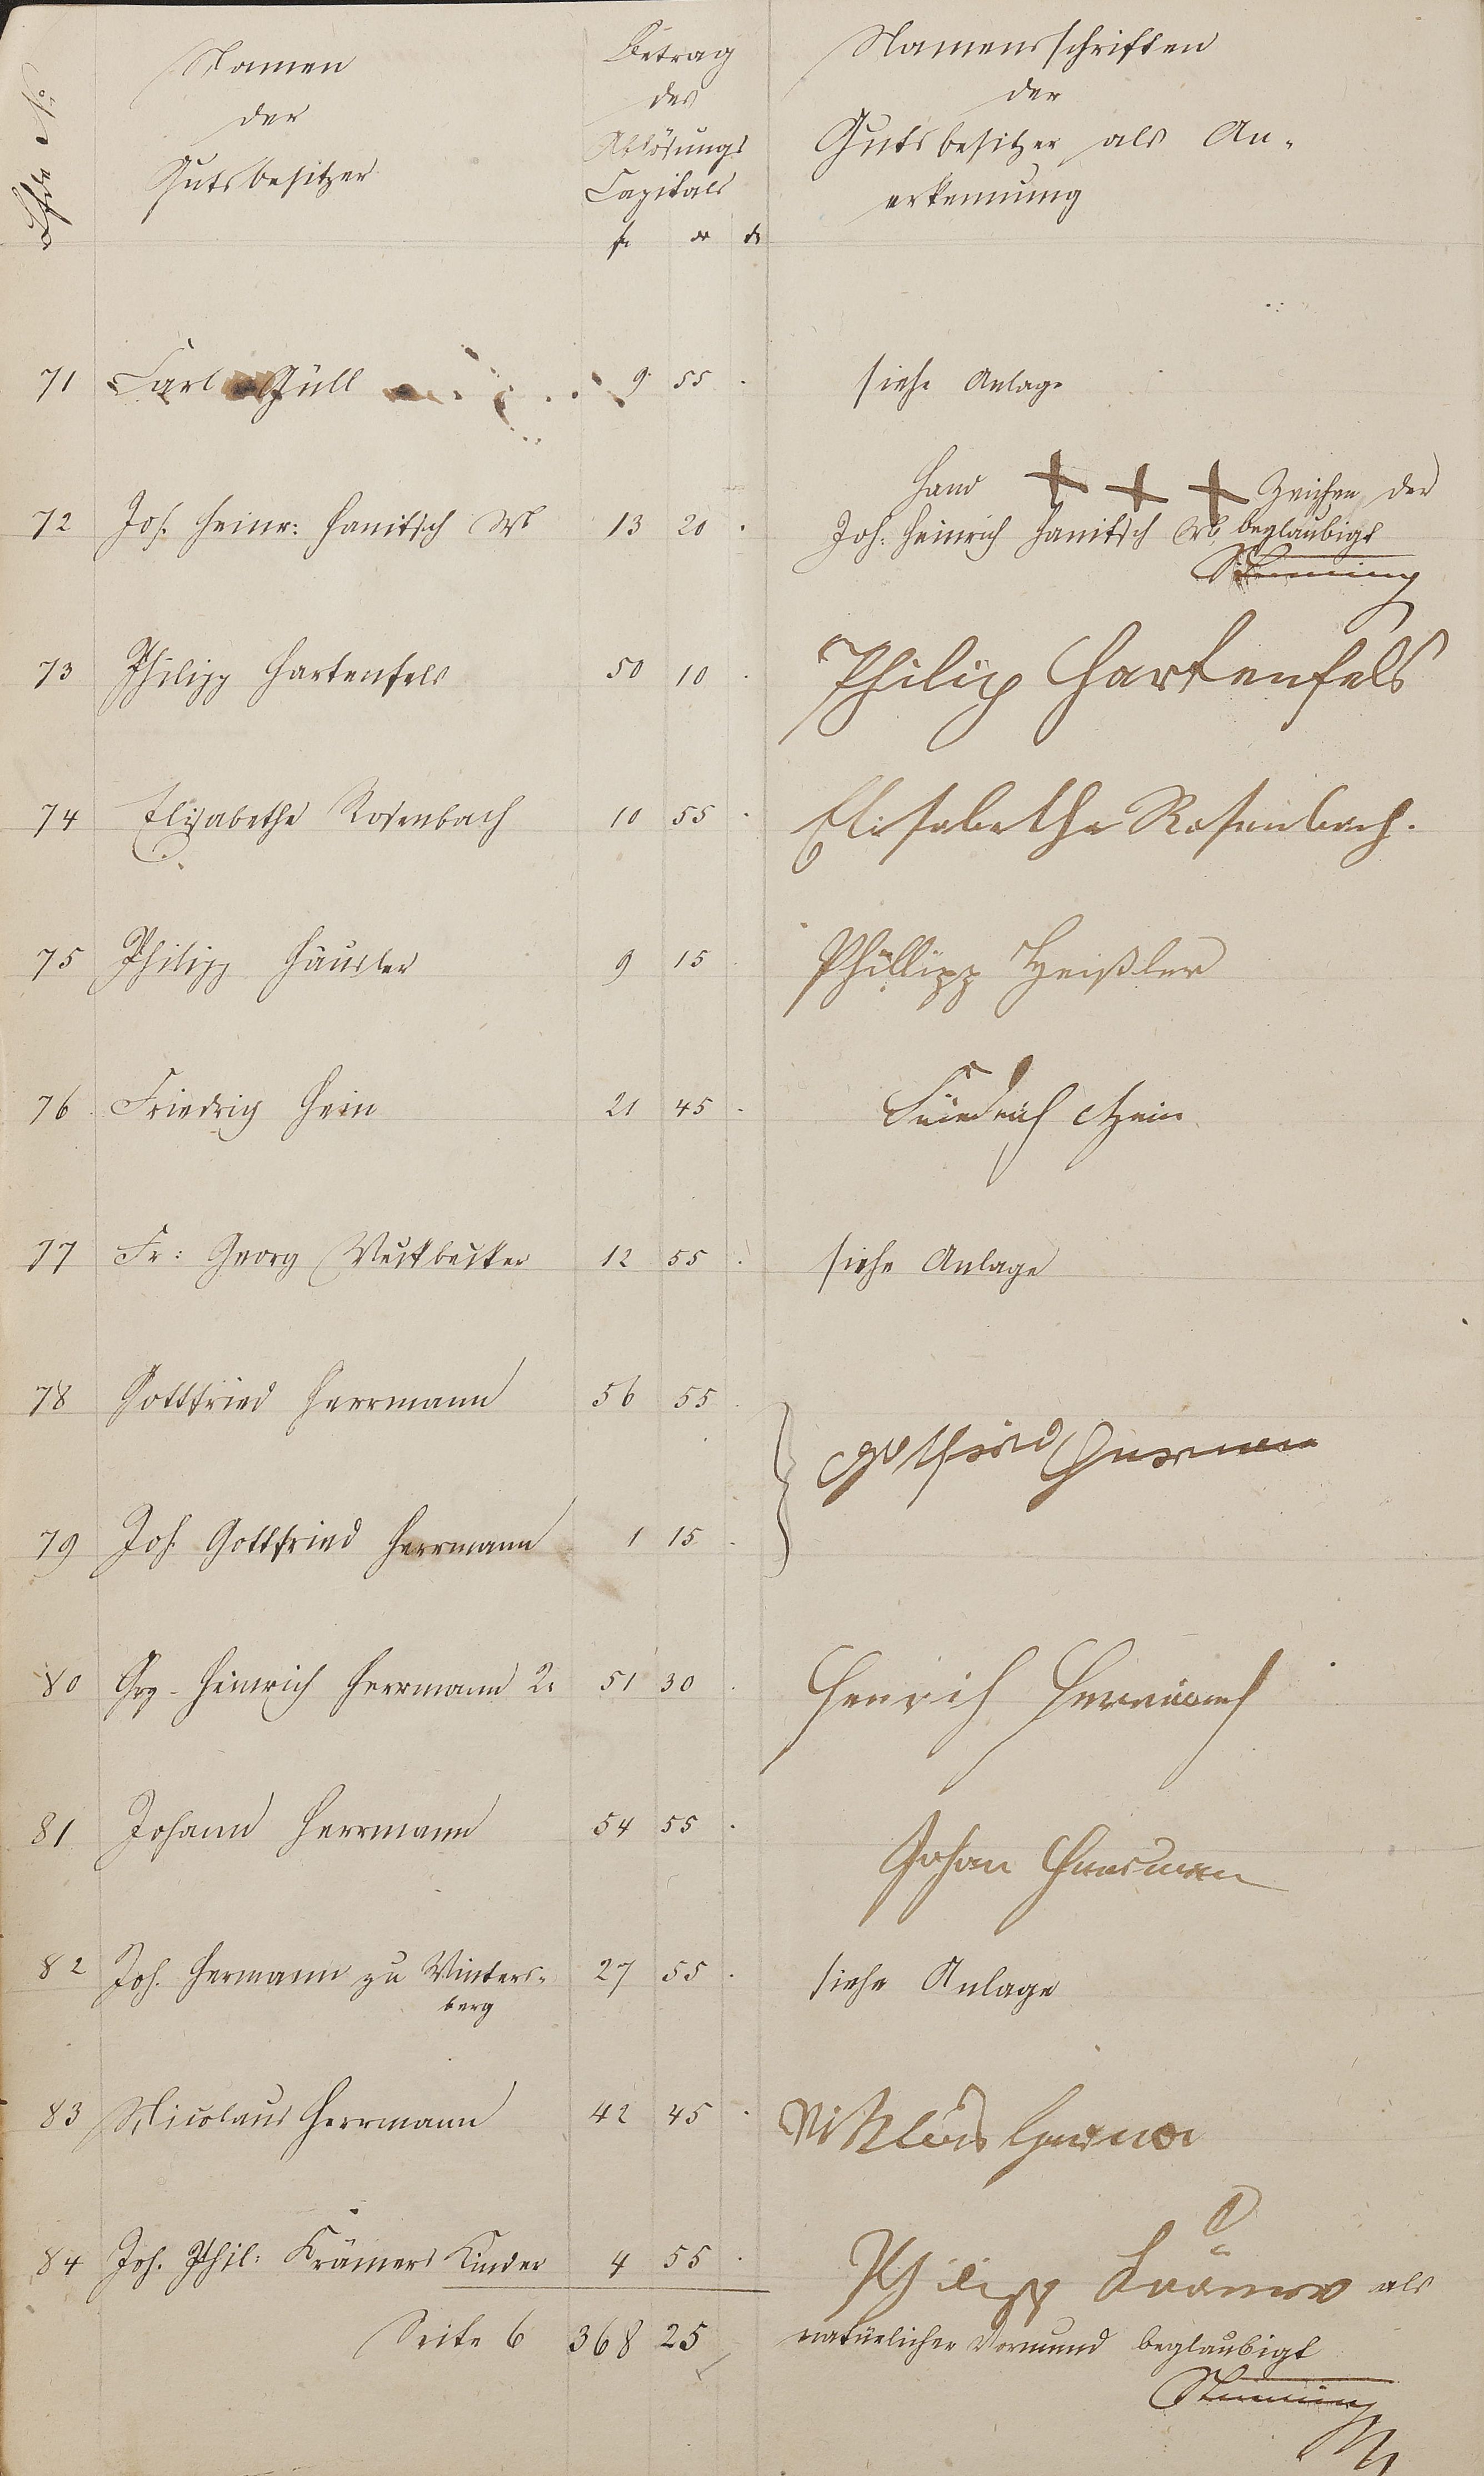 Namen
der
Gutsbesitzer
Betrag
des
Ablösungs
Capitals
Namensschriften
der
Gutsbesitzer als An-
erkennung
fl xr
71 Carl Güll 9 55 . siehe Anlage
Hand + + + Zeichen der
72 Joh. Heinr: Hanitsch Wb 13 20 . Joh: Heinrich Hanitsch Wb. beglaubigt
73 Philipp Hartenfels 50 10 . Philip Hartenfels
74 Elisabethe Rosenbach 10 55 . Elisabetha Rosenbach.
75 Philipp Häusler 9 15 . Phillipp Heißler
76 Friedrich Hein 21 45 . Friedrich Hein
77 Fr: Georg 12 55 . siehe Anlage
78 Gottfried Herrmann 56 55 .
79 Joh. Gottfried Herrmann 1 15 .
80 Grg. Heinrich Herrmann 2r 51 30 . Henrich
81 Johann Herrmann 54 55 . Johan
82 Joh. Hermann zu Winters- 27 55 . siehe Anlage
berg
83 Nicolaus Herrmann 42 45 .
84 Joh. Phil: Krämers Kinder 4 55 . Philipp als
Seite 6 368 25 natürlicher Vormund beglaubigt